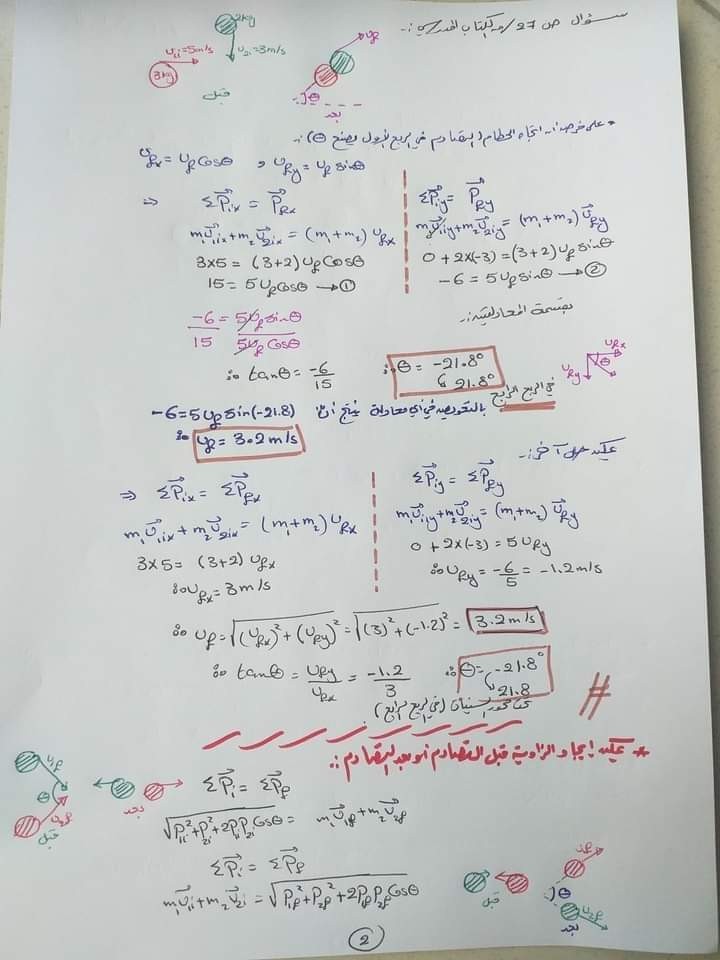 سؤال ص 27 / من الكتاب المدرسي :-
2kg
v₁ᵢ=5m/s
v₂ᵢ=3m/s
3kg
قبل
v_f
θ
بعد
* على فرض أن اتجاه الحطام التصادم في الربع الأول يصنع θ :-
v_fx = v_f cosθ , v_fy = v_f sinθ
⇒ ΣP⃗ᵢₓ = P⃗_fx
m₁v⃗₁ᵢₓ + m₂v⃗₂ᵢₓ = (m₁+m₂) v_fx
3×5 = (3+2) v_f cosθ
15 = 5v_f cosθ → ①
ΣP⃗ᵢy = P⃗_fy
m₁v⃗₁ᵢy + m₂v⃗₂ᵢy = (m₁+m₂) v⃗_fy
0 + 2×(-3) = (3+2) v_f sinθ
-6 = 5v_f sinθ → ②
بقسمة المعادلتين :-
-6/15 = 5v_f sinθ / 5v_f cosθ
∴ tanθ = -6/15
∴ θ = -21.8°
21.8°
في الربع الرابع
v_fx
θ
v_fy
-6 = 5v_f sin(-21.8) بالتعويض في أي معادلة ينتج أن
∴ v_f = 3.2 m/s
يمكن حل آخر :-
⇒ ΣP⃗ᵢₓ = ΣP⃗_fx
m₁v⃗₁ᵢₓ + m₂v⃗₂ᵢₓ = (m₁+m₂) v_fx
3×5 = (3+2) v_fx
∴ v_fx = 3 m/s
ΣP⃗ᵢy = ΣP⃗_fy
m₁v⃗₁ᵢy + m₂v⃗₂ᵢy = (m₁+m₂) v⃗_fy
0 + 2×(-3) = 5v_fy
∴ v_fy = -6/5 = -1.2 m/s
∴ v_f = √((v_fx)² + (v_fy)²) = √((3)² + (-1.2)²) = 3.2 m/s
∴ tanθ = v_fy/v_fx = -1.2/3
∴ θ = -21.8°
21.8
تحت محور السينات (في الربع الرابع)
#
* يمكن إيجاد الزاوية قبل التصادم أو بعد التصادم :-
v₁f
θ
v₂f
قبل
بعد
ΣP⃗ᵢ = ΣP⃗_f
√(P₁ᵢ² + P₂ᵢ² + 2P₁ᵢP₂ᵢ cosθ) = m₁v⃗₁f + m₂v⃗₂f
ΣP⃗ᵢ = ΣP⃗_f
m₁v⃗₁ᵢ + m₂v⃗₂ᵢ = √(P₁f² + P₂f² + 2P₁fP₂f cosθ)
قبل
v₁f
θ
v₂f
بعد
2